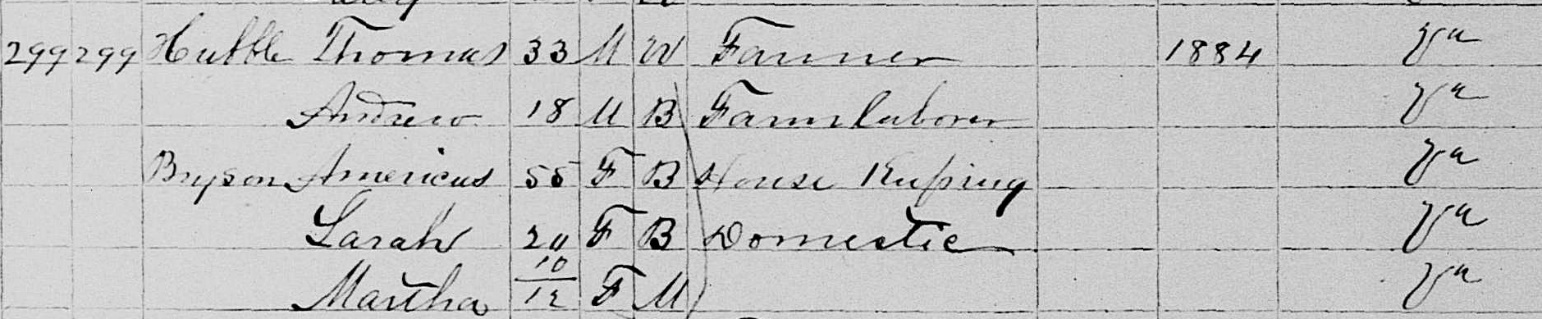 299 299 Hubble Thomas 33 M W Farmer 1884 Va
Andrew 18 M B Farm laborer Va
Bryson Americus 55 F B House Keeping Va
Sarah F B Domestic Va
Martha 10/12 F M Va